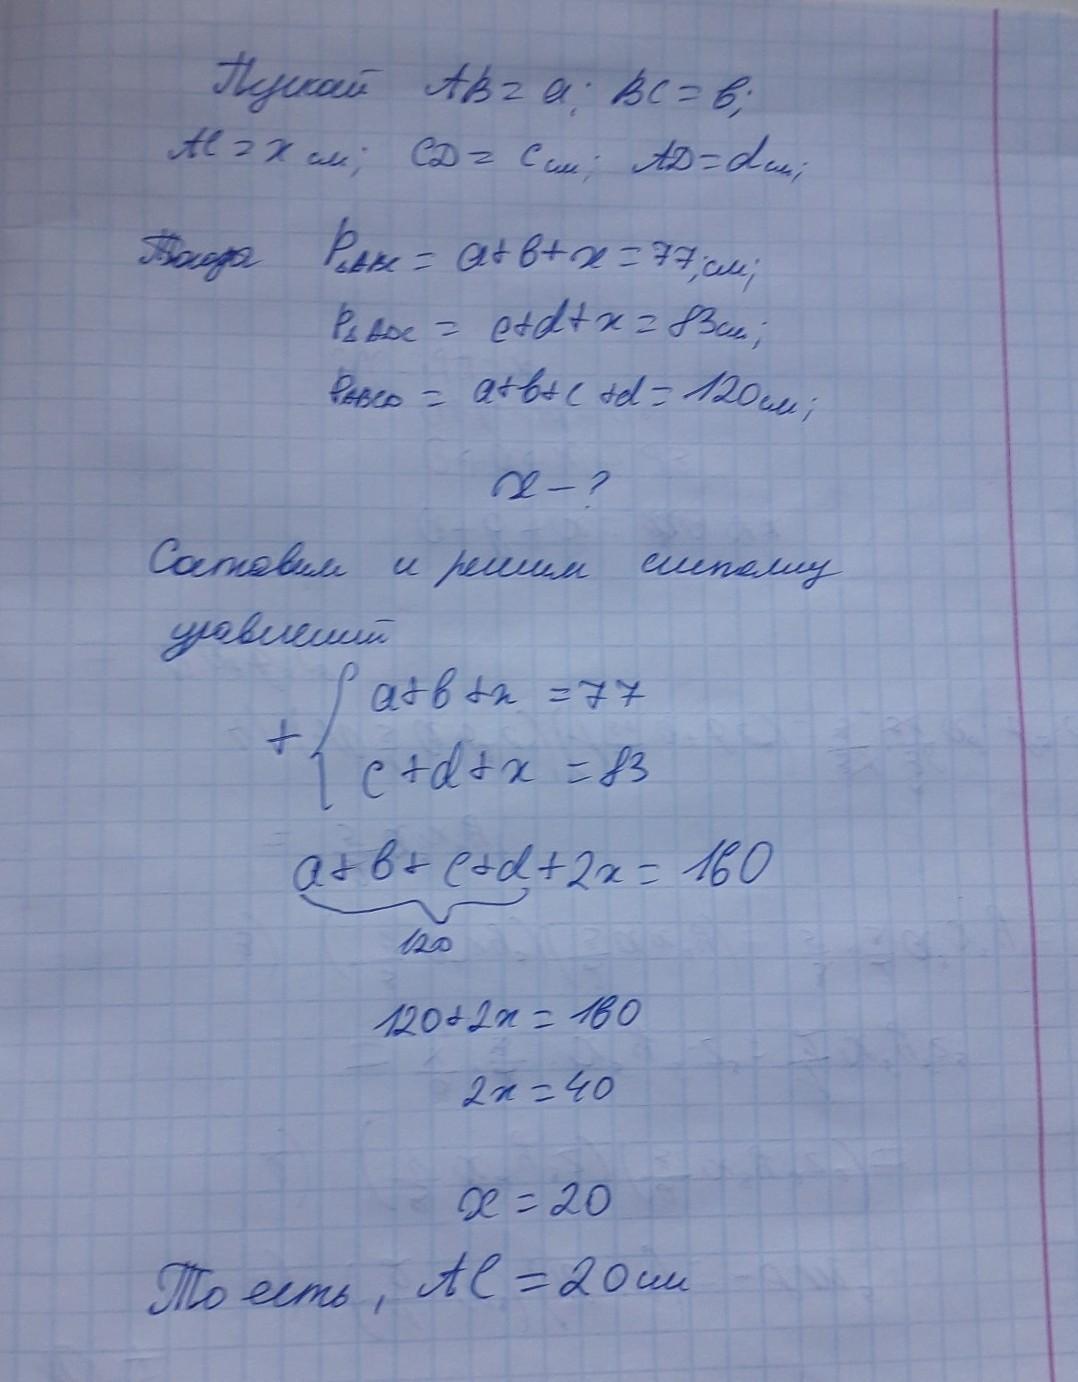 Пускай AB = a; BC = в;
AC = x см; CD = c см; AD = d см;
Тогда P△ABC = a+в+x = 77 см;
P△ADC = c+d+x = 83 см;
PABCD = a+в+c+d = 120 см;
x – ?
Составим и решим систему
уравнений
+ { a+в+x = 77
c+d+x = 83
a+в+c+d+2x = 160
120
120+2x = 160
2x = 40
x = 20
То есть, AC = 20 см